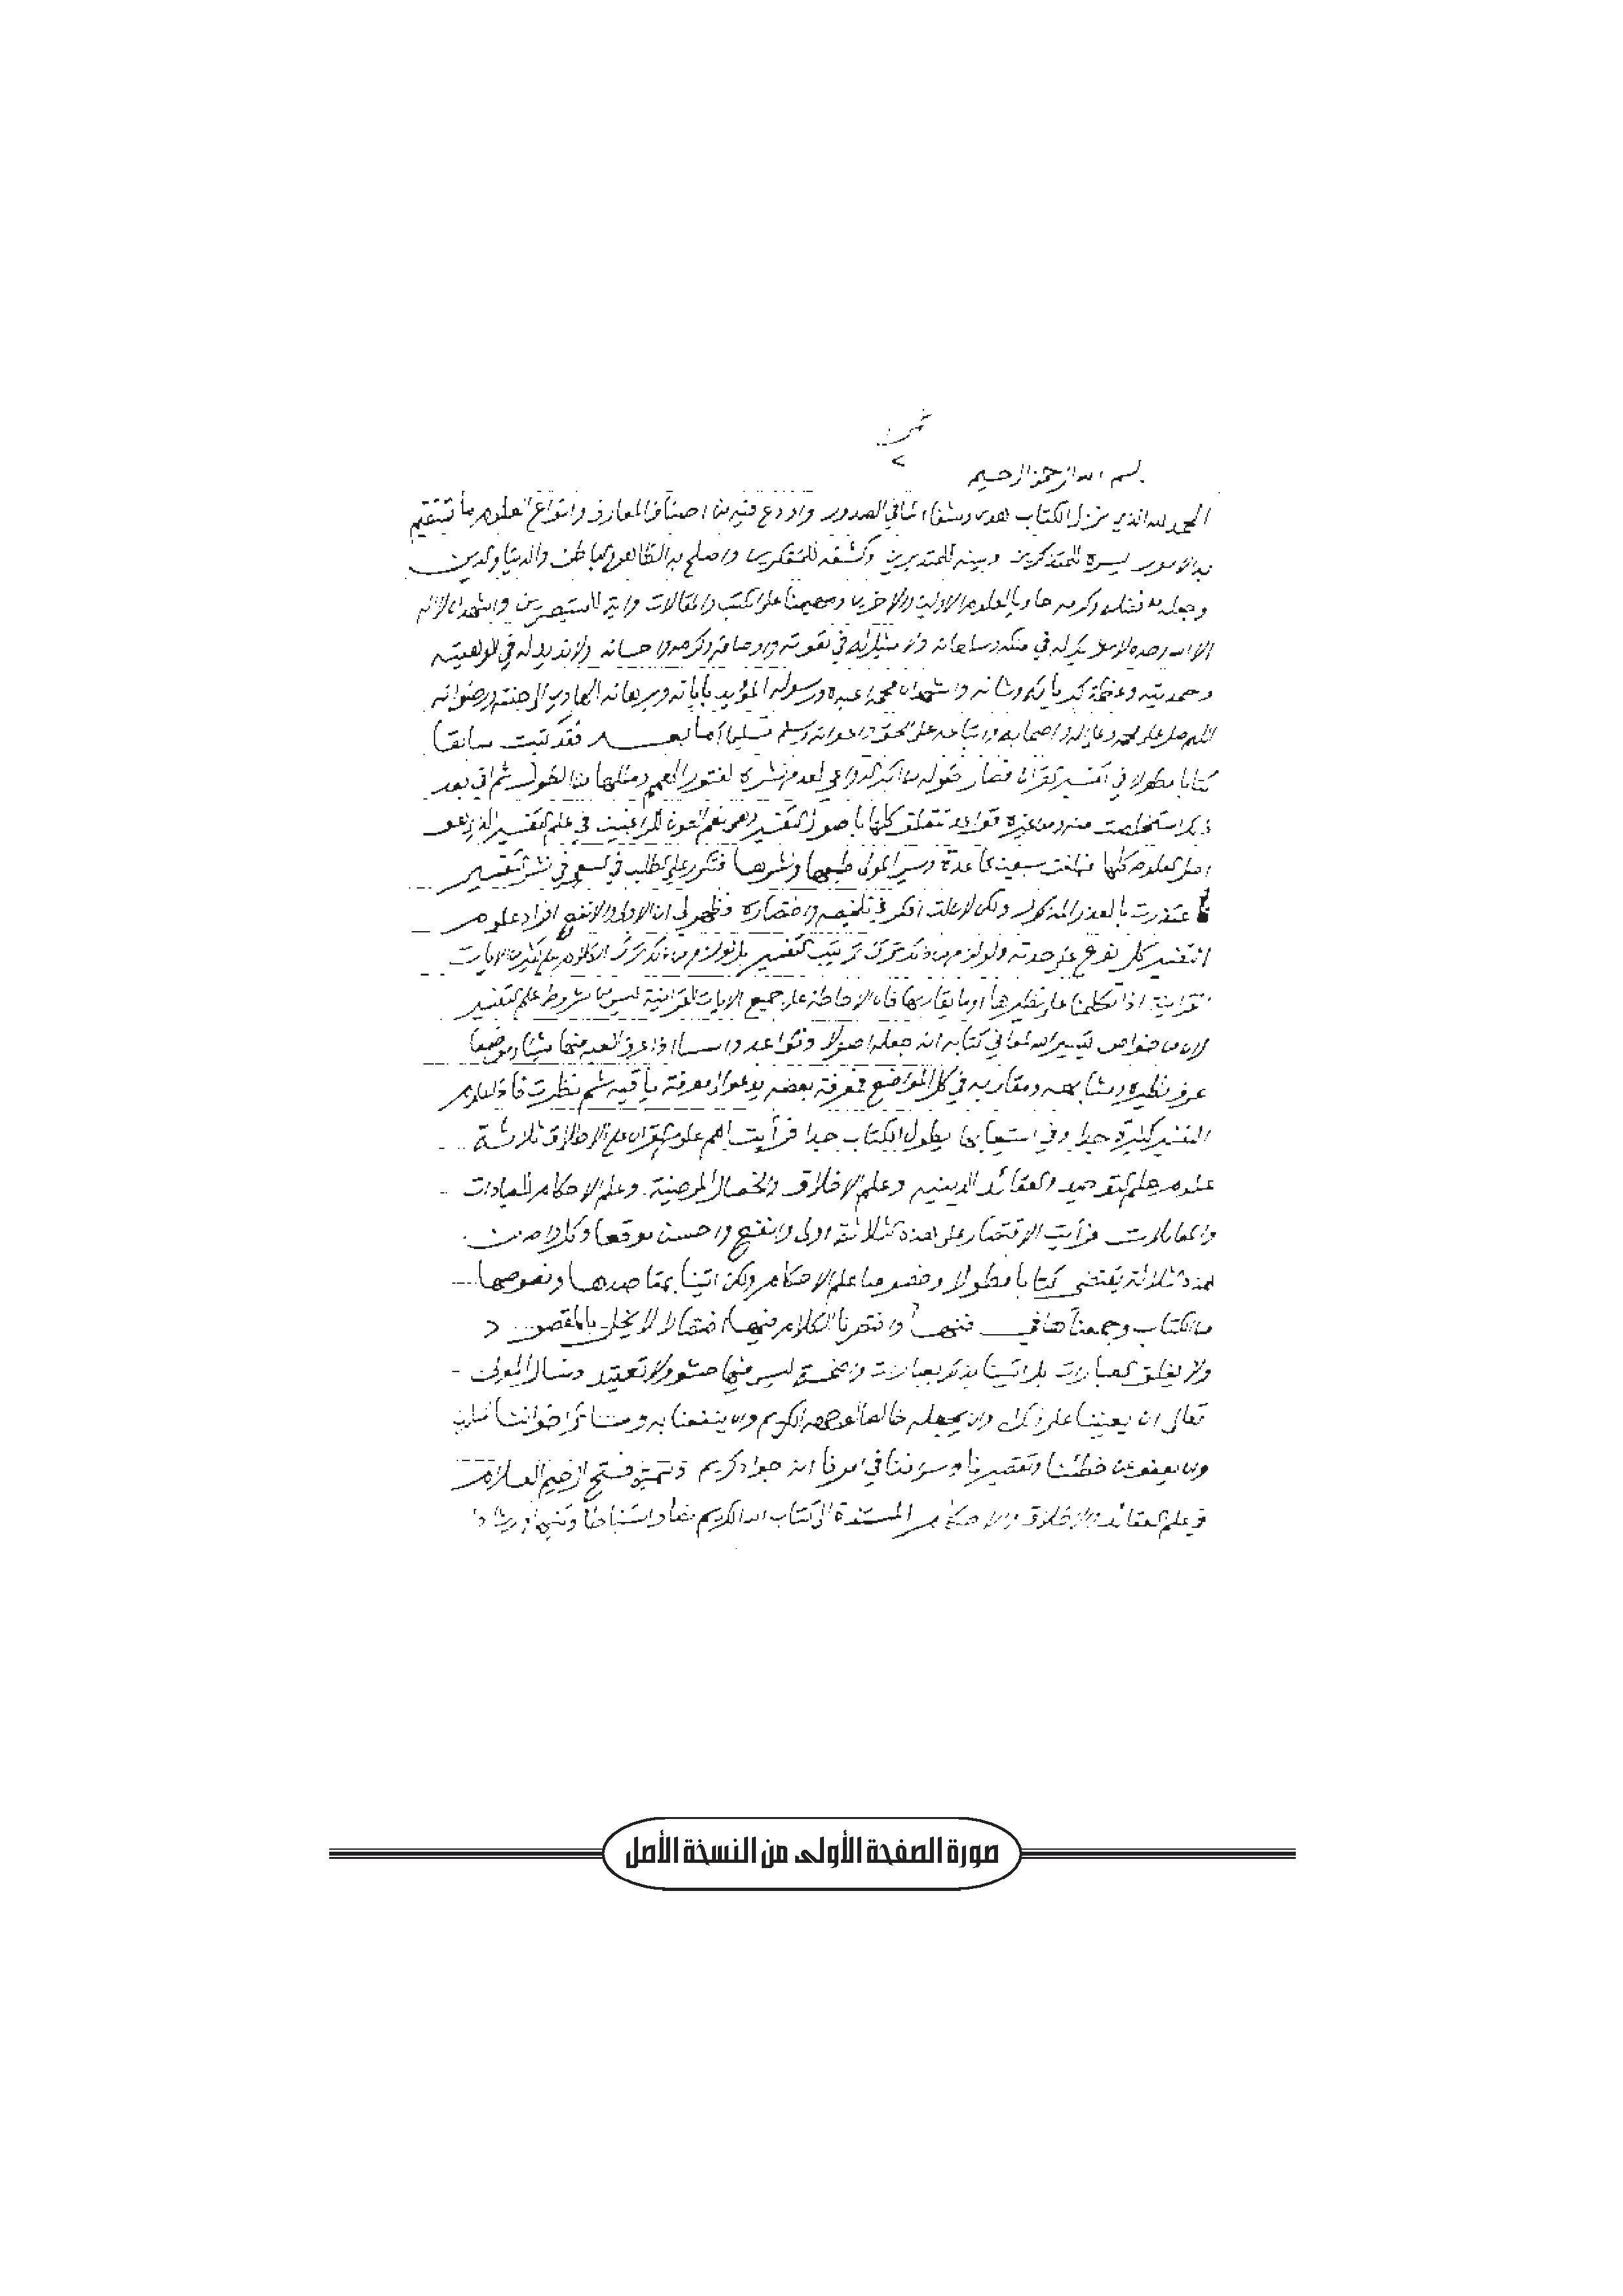 بسم الله الرحمن الرحيم
الحمد لله الذي نزل الكتاب هدى وشفاء لما في الصدور واودع فيه من اصناف المعارف وانواع العلوم ما تستقيم
به الامور يسره للمتذكرين وبينه للمتدبرين وكشفه للمتفكرين واصلح به الظاهر والباطن والدنيا والدين
وجعله بفضله وكرمه حاويا لعلوم الاولين والاخرين ومهيمنا على الكتب والمقالات واية للمستبصرين واشهد ان لا اله
الا الله وحده لا شريك له في ملكه وسلطانه ولا مثيل له في نعوته واوصافه وكرمه واحسانه ولا نديد له في الوهيته
وصمديته وعظمة كبريائه وشانه واشهد ان محمدا عبده ورسوله المؤيد بآياته وبرهانه الهادي الى جنته ورضوانه
اللهم صل على محمد وعلى اله واصحابه واتباعه على الحق واعوانه وسلم تسليما أما بعد فقد كتبت سابقا
كتابا مطولا في تفسير القرآن فصار طوله من اكبر الدواعي لعدم نشره لفتور الهمم ومللها من الطول ثم اني بعد
ذلك استخلصت منه ومن غيره قواعد تتعلق كلها باصول التفسير وهي نعم العون للراغبين في علم التفسير الذي هو
اصل العلوم كلها فبلغت سبعين قاعدة ويسر المولى طبعها ونشرها فتكرر علي الطلب في السعي في نشر التفسير
فاعتذرت بالعذر المذكور ولكن لا زلت افكر في تلخيصه واختصاره فظهر لي ان الاولى والانفع افراد علوم
التفسير كل نوع على حدته ولو لزم من ذلك ترك ترتيب التفسير بل ولو لزم من ذلك ترك الكلام على كثير من الايات
القرآنية اذا تكلمنا على نظيرها او ما يقاربها فان الاحاطة على جميع الايات القرآنية ليس من شروط علم التفسير
لان من خواص تيسير الله لمعاني كتابه انه جعله اصولا وقواعد واسسا اذا عرف العبد منها شيئا وموضعا
عرف نظيره ومشابهه ومقاربه في كل المواضع فمعرفة بعضه يدعو الى معرفة باقيه ثم نظرت فاذا علوم
التفسير كثيرة جدا وفي استيعابها يطول الكتاب جدا فرأيت اهم علوم القرآن على الاطلاق ثلاثة
علوم علم التوحيد والعقائد الدينية وعلم الاخلاق والخصال المرضية وعلم الاحكام للعبادات
والمعاملات فرأيت الاقتصار على هذه الثلاثة اولى وانفع واحسن موقعا وكل واحد من
هذه الثلاثة يقتضي كتابا مطولا وخصوصا علم الاحكام ولكن اتينا بمقاصدها ونصوصها
من الكتاب وجمعناها في فنها واختصرنا الكلام فيها اختصارا لا يخل بالمقصود
ولا يغلق العبارات بل اتينا بذلك بعبارات واضحة ليس فيها حشو ولا تعقيد ونسأل المولى
تعالى ان يعيننا على ذلك وان يجعله خالصا لوجهه الكريم وان ينفعنا به وسائر اخواننا المسلمين
وان يعفو عن خطئنا وتقصيرنا واسرافنا في امرنا انه جواد كريم وسميته فتح الرحيم العلام
في علم العقائد والاخلاق والاحكام المستمدة الى كتاب الله الكريم نصا واستنباطا وتنبيها وارشادا
صورة الصفحة الأولى من النسخة الأصل